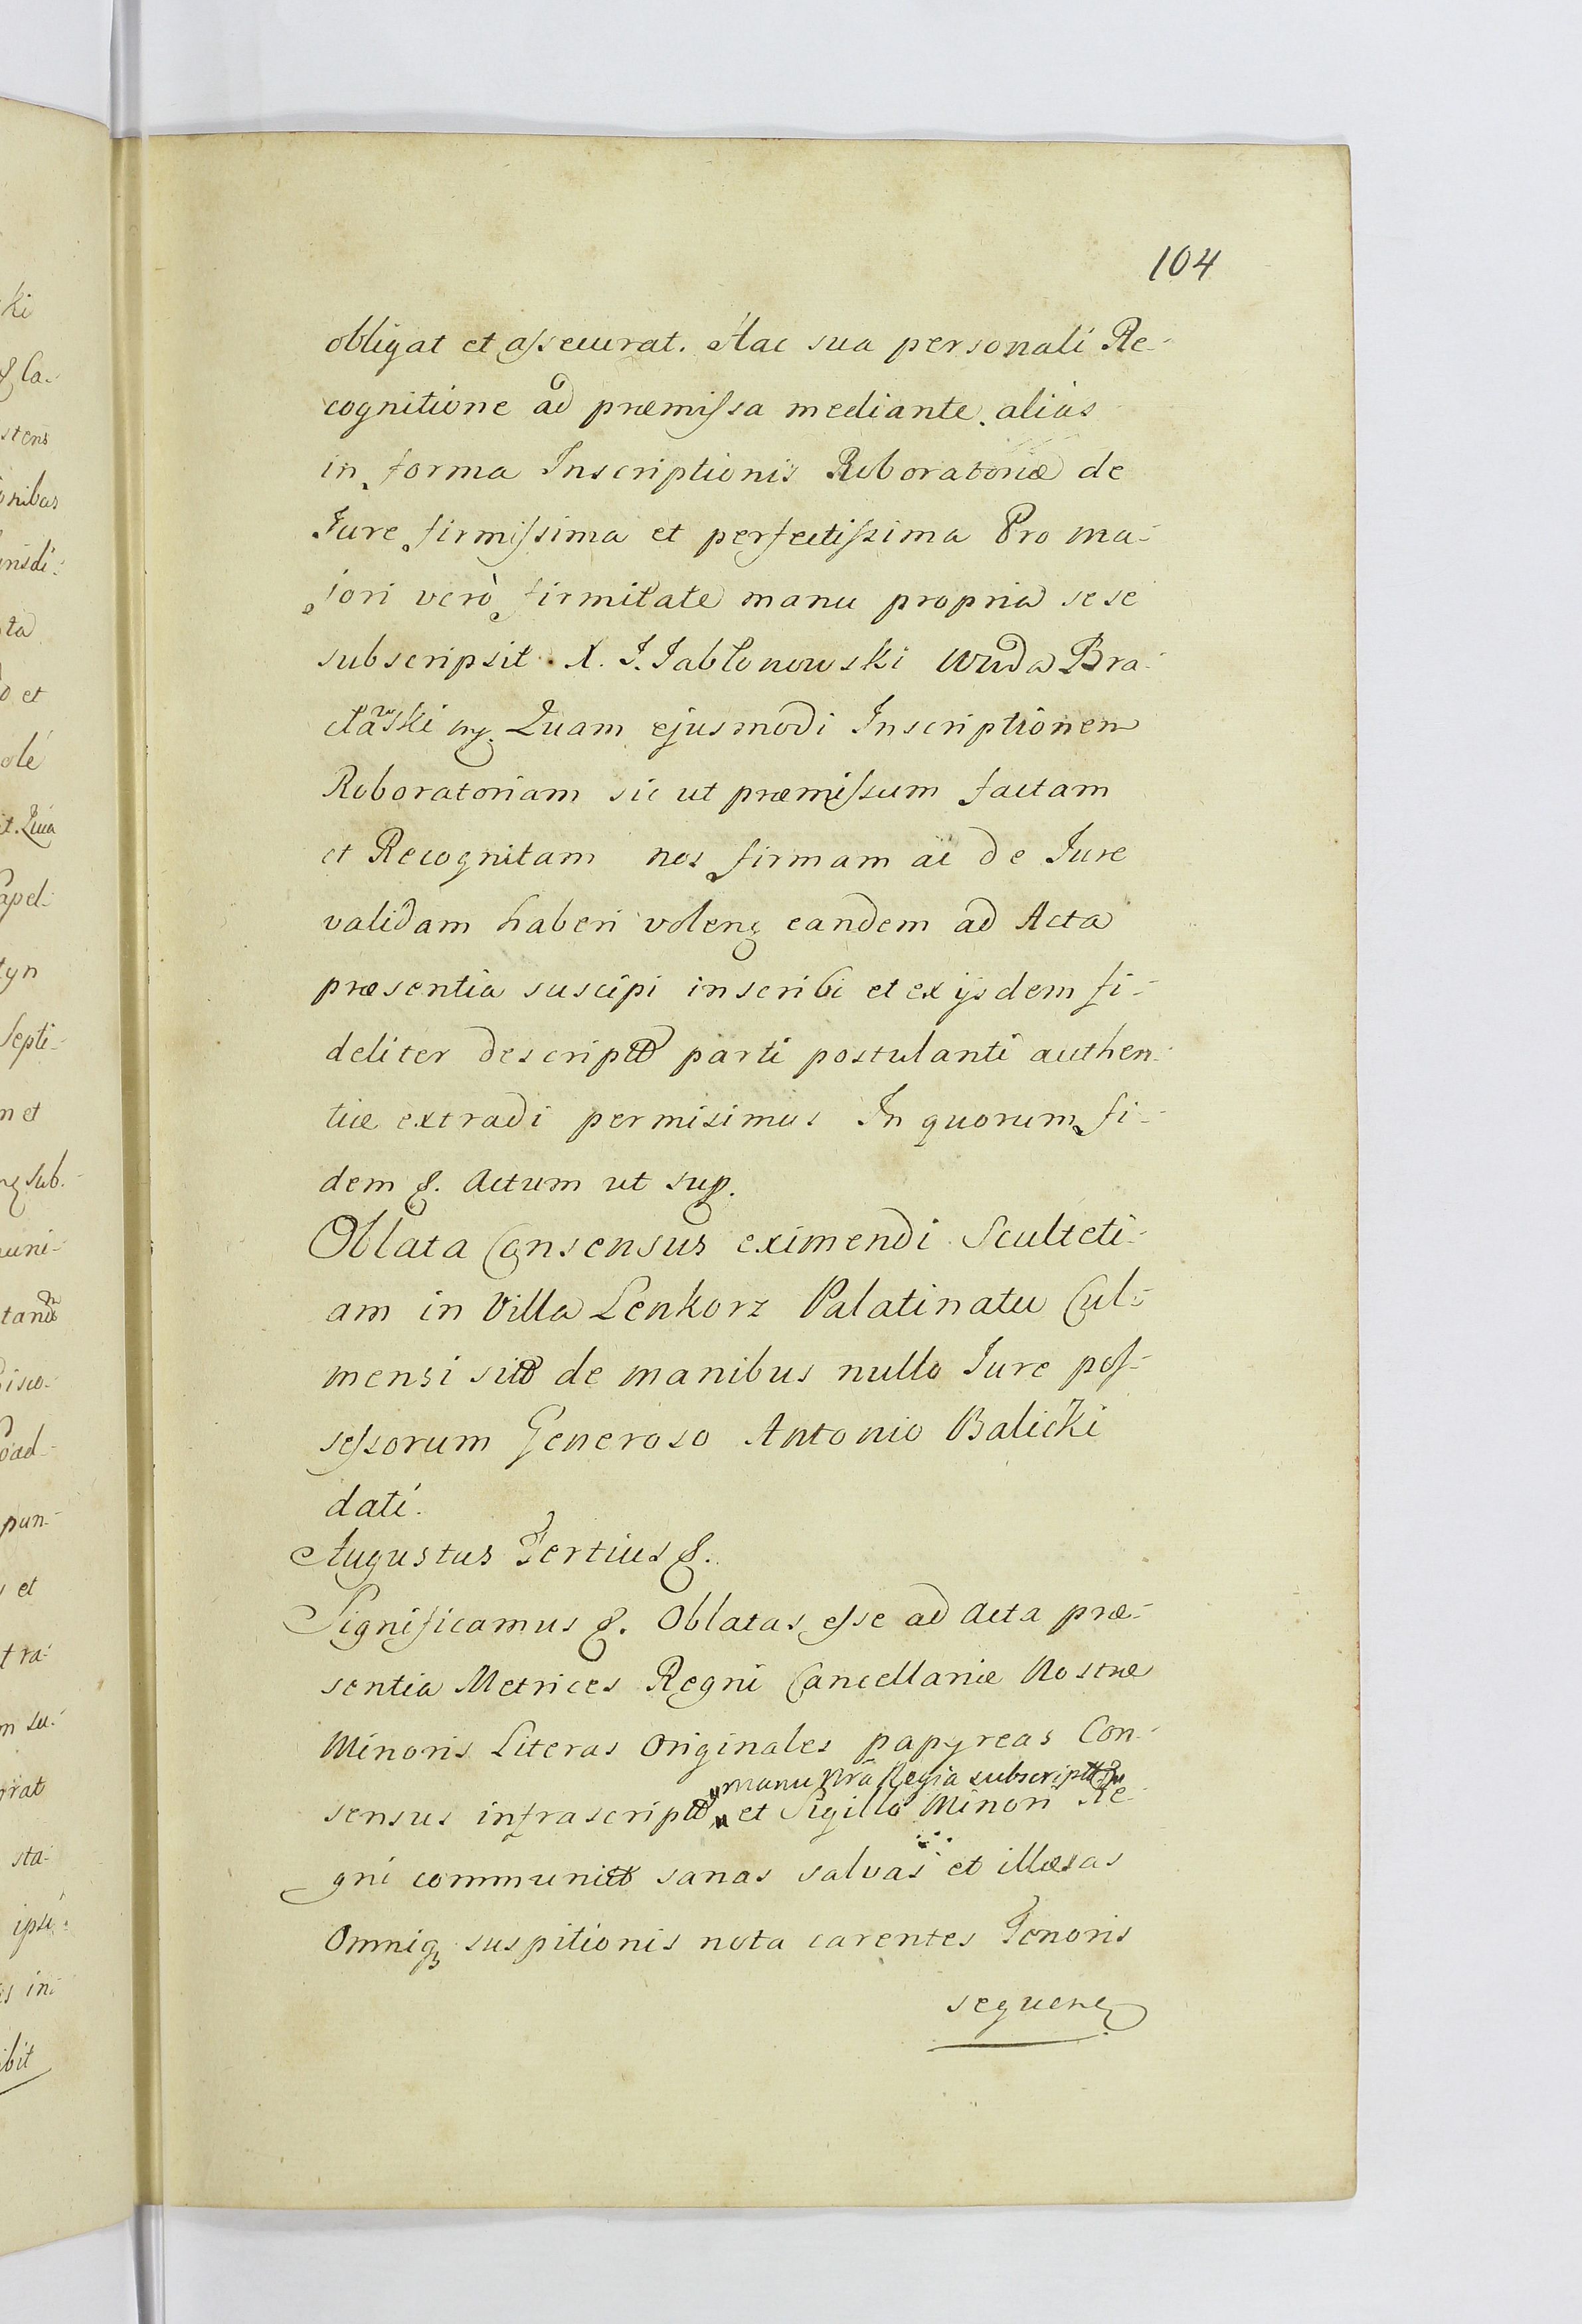 104
obligat et assecurat. Hac sua personali Re-
cognitione ad præmissa mediante. alias
in forma Inscriptionis Roboratoriæ de
Iure firmissima et perfectissima Pro ma-
jori verò firmitate manu propria sese
subscripsit. X. J. Jabłonowski Wuda Bra-
cławski mp. Quam ejusmodi Inscriptionem
Roboratoriam sic ut præmissum factam
et Recognitam nos firmam ac de Iure
validam haberi volens eandem ad Acta
præsentia suscipi inscribi et ex ijsdem fi-
deliter descript parti postulanti authen-
tice extradi permisimus In quorum fi-
dem &. Actum ut sup.
Oblata Consensus eximendi Sculteti-
am in Villa Lenkorz Palatinatu Cul-
mensi sit de manibus nullo Iure pos-
sessorum Generoso Antonio Balicki
dati.
Augustus Tertius &.
Significamus &. Oblatas esse ad Acta præ-
sentia Metrices Regni Cancellariæ Nostræ
Minoris Literas Originales papyreas Con-
manu Nrã Regia subscript
sensus infrascript et Sigillo Minori Re-
gni communit sanas salvas et illæsas
Omniq suspitionis nota carentes Tenoris
sequen
ki
& la-
stens
onibus
ta
et
olé
it. Qua
apel-
tyn
Septi-
m et
sub-
uni-
pun-
et
tra-
m su-
rat
sta-
ipsi-
es in-
ibit